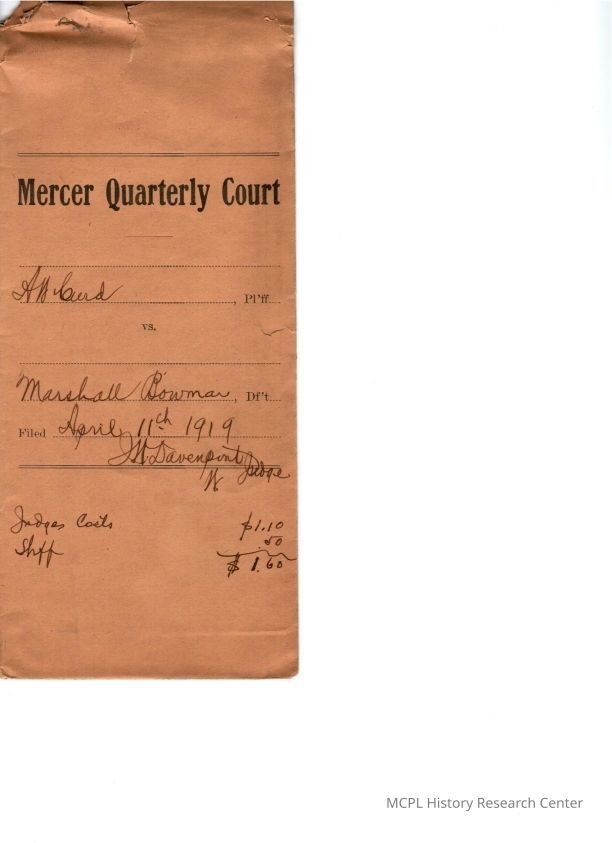 Mercer Quarterly Court
A W Curd, Pl'ff.
vs.
Marshall Bowman, Df't.
Filed April 11th 1919
Davenport Judge
Judges Costs $1.10
Shff .50
$ 1.60
MCPL History Research Center